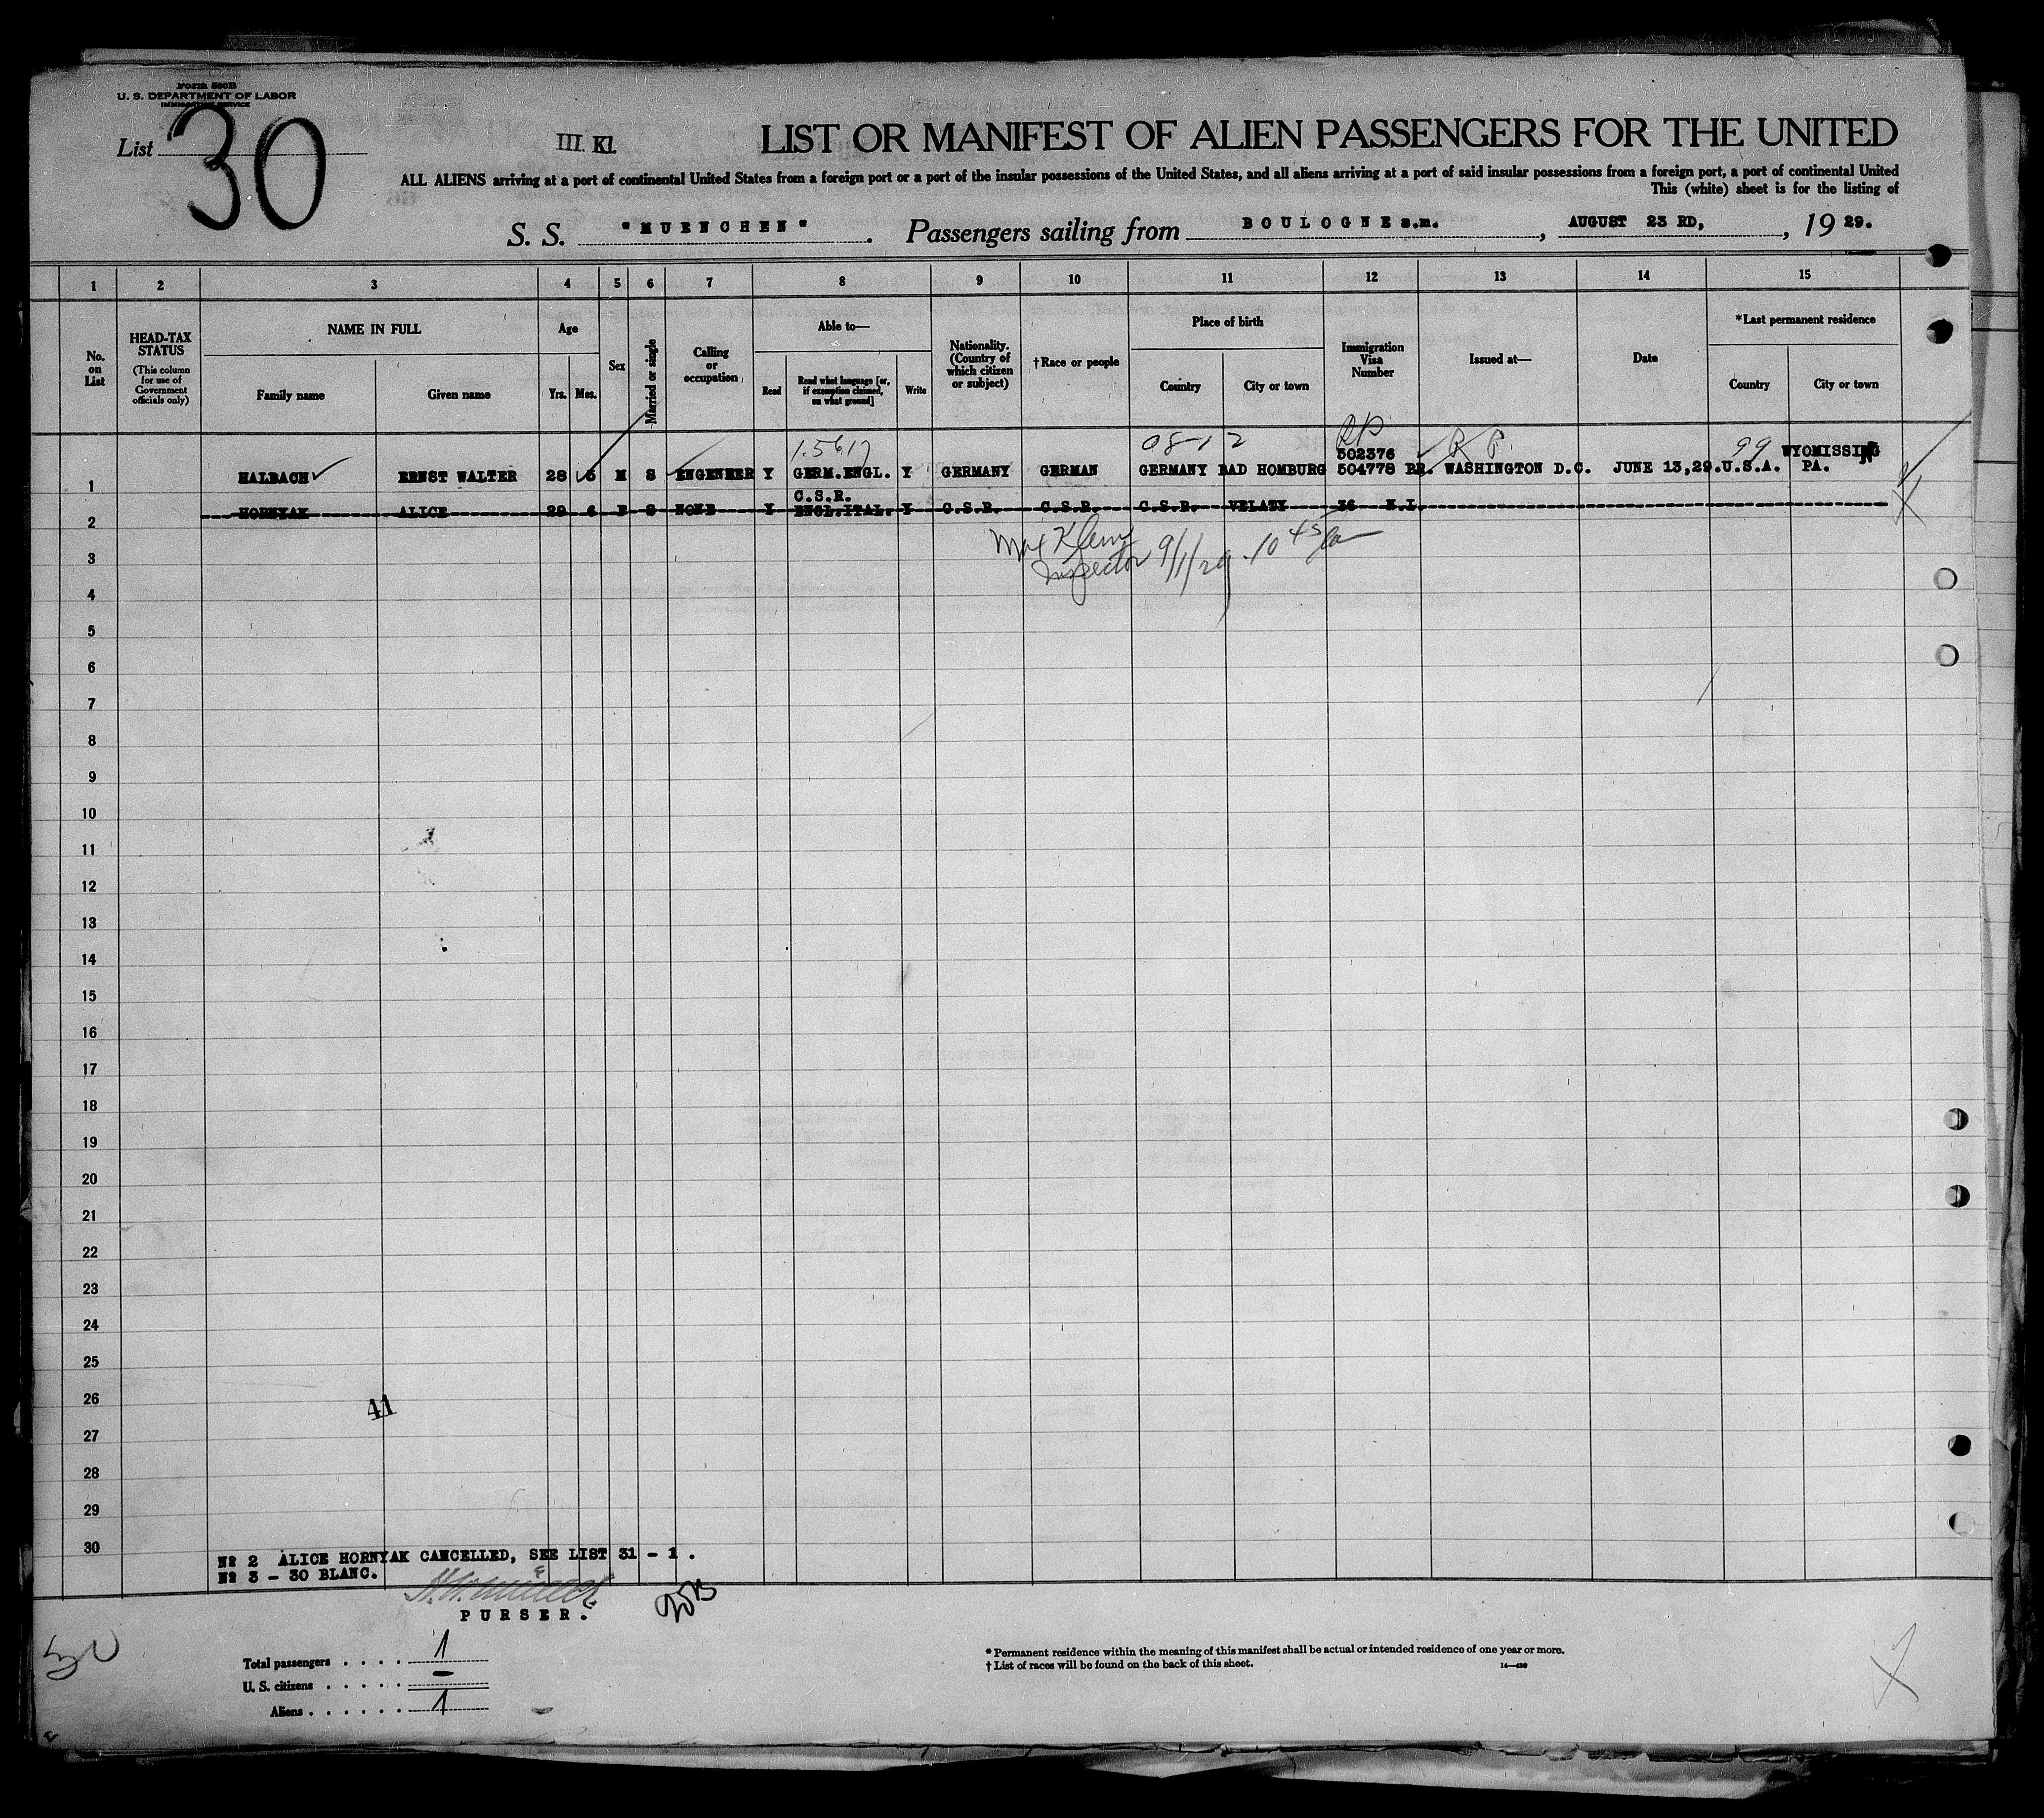 Form 500B
U. S. DEPARTMENT OF LABOR
IMMIGRATION SERVICE
List 30
III. Kl.
LIST OR MANIFEST OF ALIEN PASSENGERS FOR THE UNITED
ALL ALIENS arriving at a port of continental United States from a foreign port or a port of the insular possessions of the United States, and all aliens arriving at a port of said insular possessions from a foreign port, a port of continental United
This (white) sheet is for the listing of
S. S. "MUENCHEN". Passengers sailing from BOULOGNE s.m., AUGUST 23 RD, , 19 29.
1 2 3 4 5 6 7 8 9 10 11 12 13 14 15
No. on List
HEAD-TAX STATUS (This column for use of Government officials only)
NAME IN FULL
Family name Given name
Age
Yrs. Mos.
Sex
Married or single
Calling or occupation
Able to—
Read Read what language [or, if exemption claimed, on what ground] Write
Nationality. (Country of which citizen or subject)
†Race or people
Place of birth
Country City or town
Immigration Visa Number
Issued at—
Date
*Last permanent residence
Country City or town
1.5617 08-12 RP R P. 99
502376 WYOMISSING
1 HALBACH ERNST WALTER 28 5 M S ENGENEER Y GERM.ENGL. Y GERMANY GERMAN GERMANY BAD HOMBURG 504778 BR. WASHINGTON D.C. JUNE 13,29. U.S.A. PA.
C.S.R.
2 HORNYAK ALICE 29 6 F S NONE Y ENGL.ITAL. Y C.S.R. C.S.R. C.S.R. VELATY 36 N.I.
Inspector 9/1/29 10 45
3
4
5
6
7
8
9
10
11
12
13
14
15
16
17
18
19
20
21
22
23
24
25
26
41
27
28
29
30
№ 2 ALICE HORNYAK CANCELLED, SEE LIST 31 - 1 .
№ 3 - 30 BLANC.
PURSER.
Total passengers . . . . 1
U. S. citizens . . . . . –
Aliens . . . . . . 1
* Permanent residence within the meaning of this manifest shall be actual or intended residence of one year or more.
† List of races will be found on the back of this sheet.
14—430